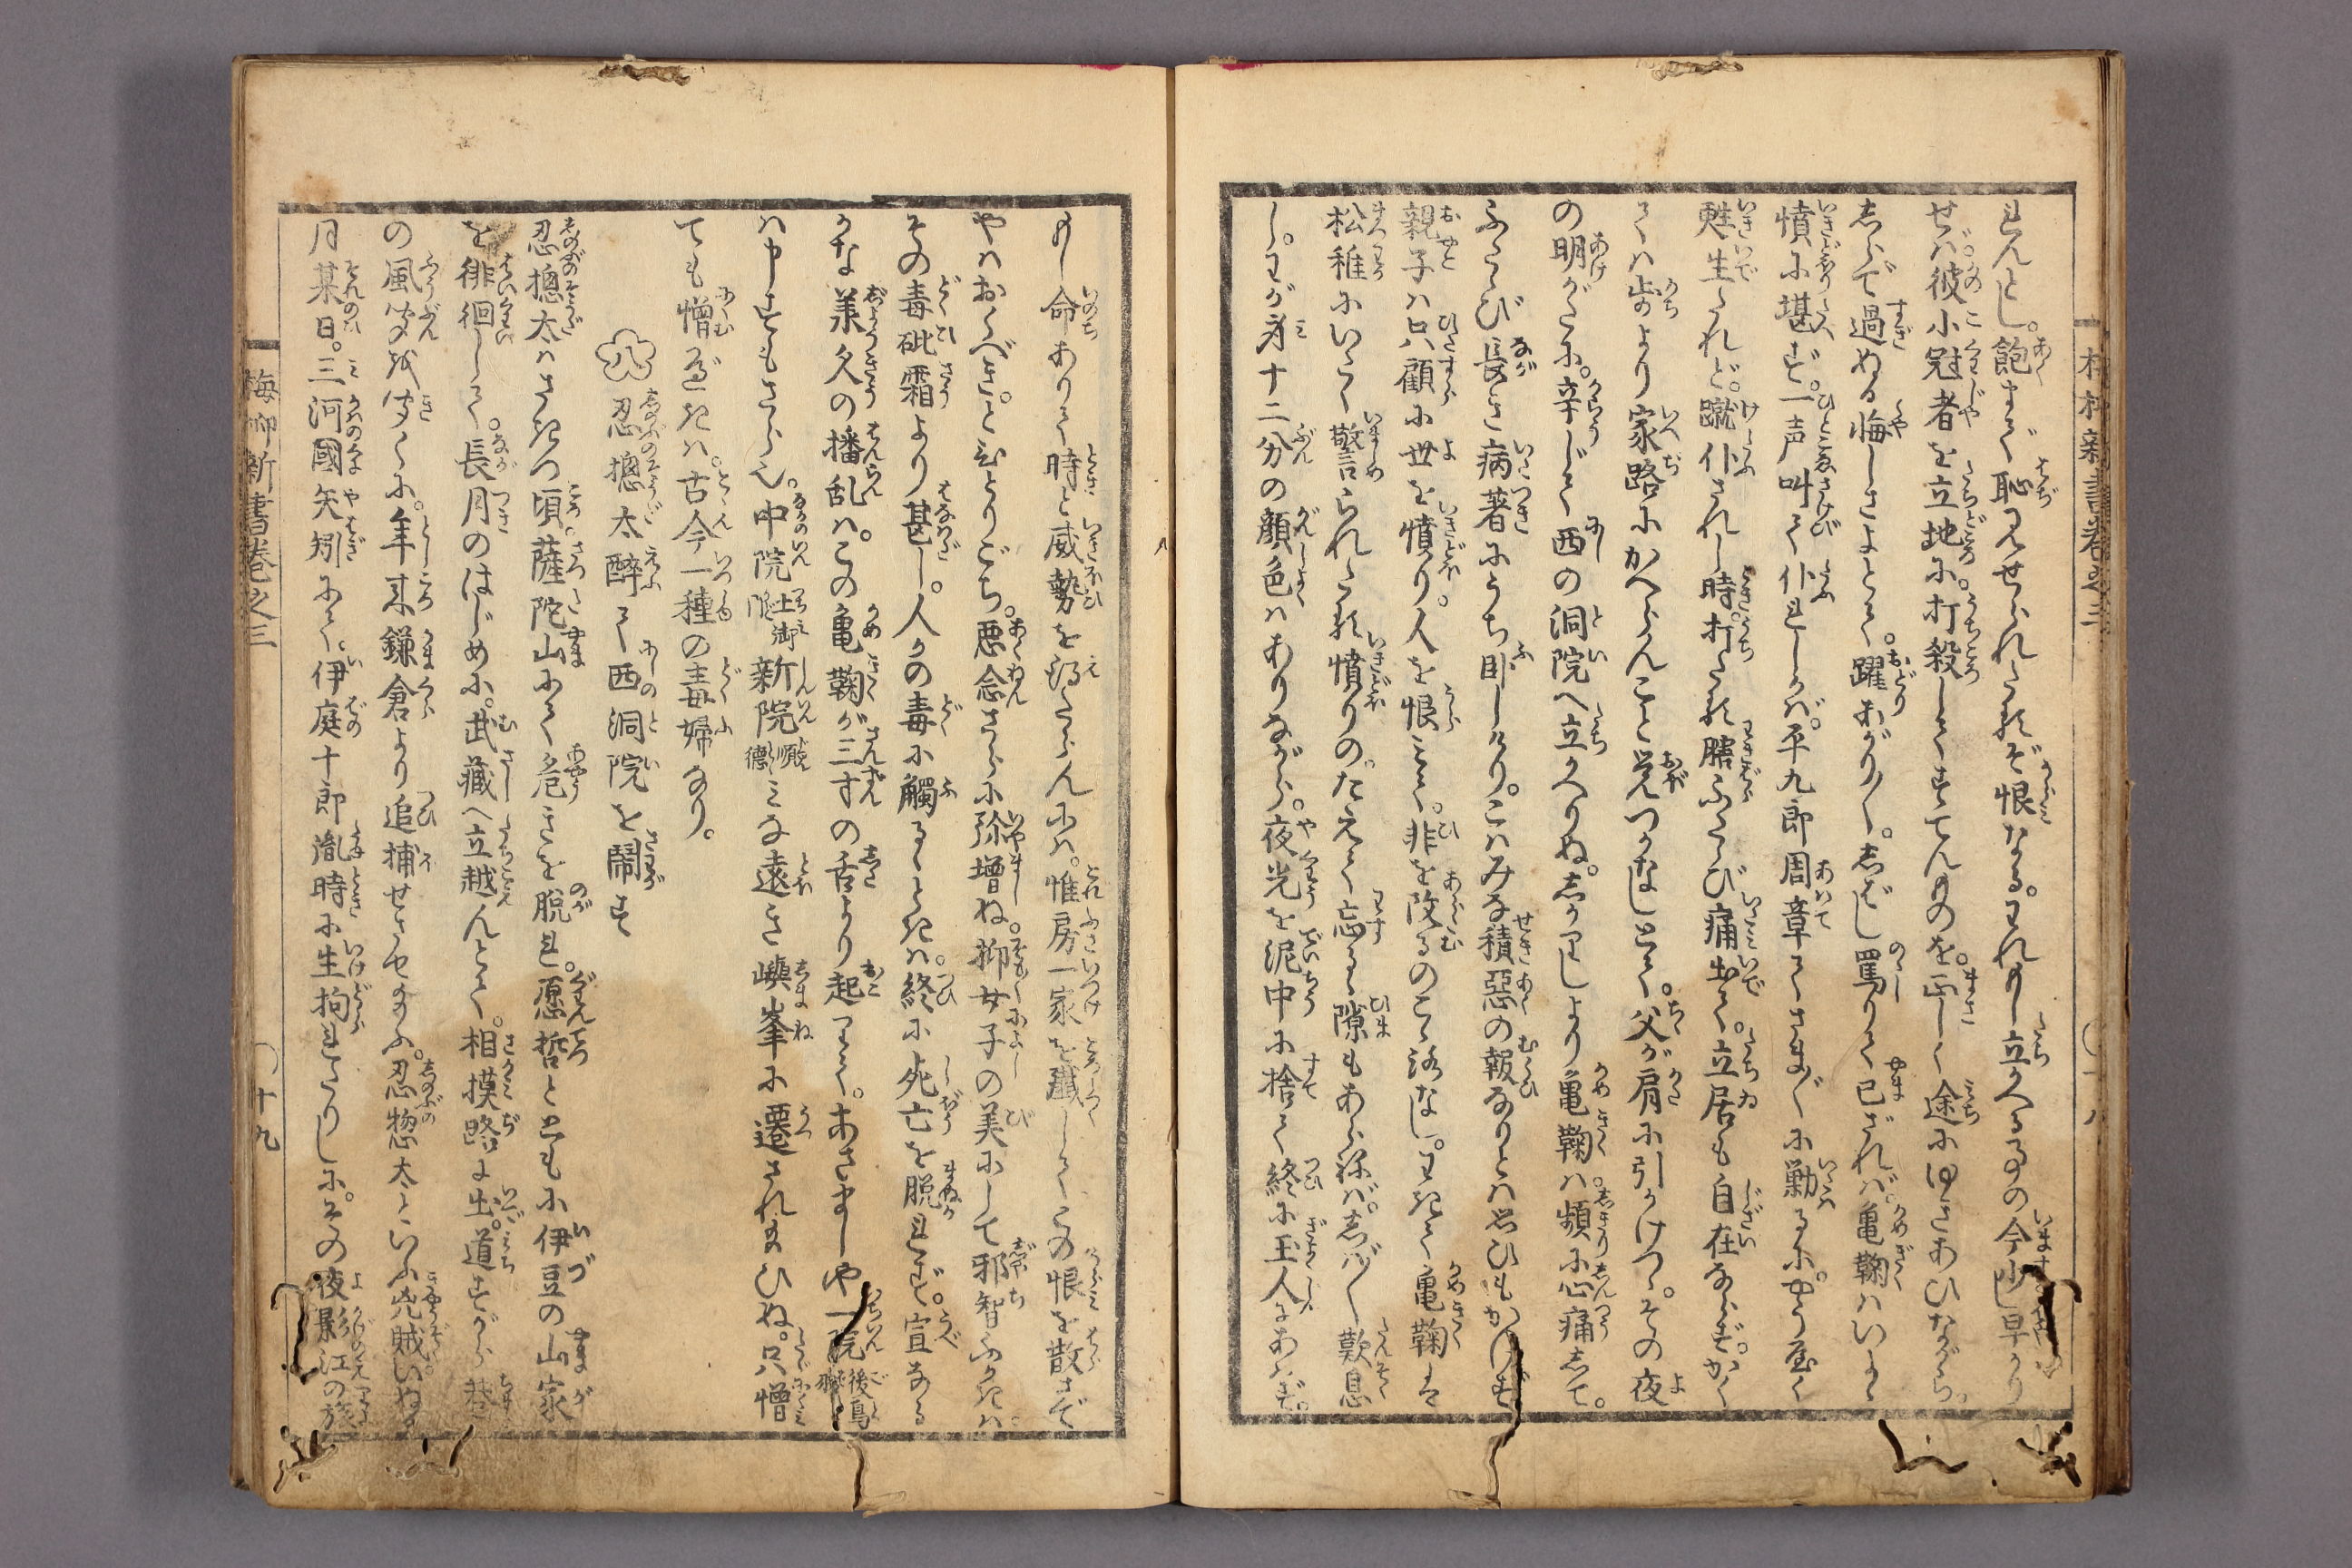 れんとし。飽まで恥見せられたるぞ恨なる。われもし立かへるの今少し早かり
せば。彼小冠者を立地に。打殺してすてんものを。正しく途にゆきあひながら。
しらで過ぬる悔しさよとて。躍あがり〳〵。しばし罵りて已ざれば。亀鞠はいよゝ
憤に堪ず。一声叫て仆れしかば。平九郎周章てさま〴〵に勦るに。やう座く
甦生たれど。蹴仆されし時。打たる膪ふたゝび痛出て。立居も自在ならず。かく
ては出のより家路にかへらんこと覚つかなしとて。父が肩に引かけつゝ。その夜
の明がたに。辛じて西の洞院へ立かへりぬ。しかりしより亀鞠は。頻に心痛して。
ふたゝび長き病著にうち臥しけり。こはみな積惡の報なりとは思ひもかけず
親子は只顧に世を憤り。人を恨みて。非を改るのこゝろなし。わきて亀鞠は
松稚にいたく警られたる憤りの。たえて忘るゝ隙もあらねば。しば〳〵歎息
し。わが身十二分の顔色はありながら。夜光を泥中に捨て終に玉人にあはず。
もし命ありて時と威勢を得たらんには。惟房一家を殱してこの恨を散さで
やはおくべき。とひとりごち。悪念さらに弥増ぬ。抑女子の美にして邪智ふかきは。
その毒砒霜より甚し。人その毒に觸るゝときは。終に死亡を脱れず。宜なる
かな羕久の播乱は。この亀鞠が三寸の舌より起りて。あさましや一院後鳥羽
は申すもさら也。中院土御門新院順徳みな遠き嶼峯に遷されたまひぬ。只憎
ても憎むべきは。古今一種の毒婦なり。
八 忍揔太醉て西洞院を鬧す
忍揔太はさきつ頃。薩陀山にて危きを脱れ。慿哲とともに伊豆の山家
を徘徊して。長月のはじめに。武藏へ立越んとて。相摸路に出。道すがら巷
の風聞を聞くに。年来鎌倉より追捕せさせ給ふ。忍惣太といふ兇賊いぬる
月某日。三河國矢矧にて。伊庭十郎胤時に生拘れたりしに。その夜影江の旅
梅柳新書卷之三
十八
梅柳新書卷之三
十九